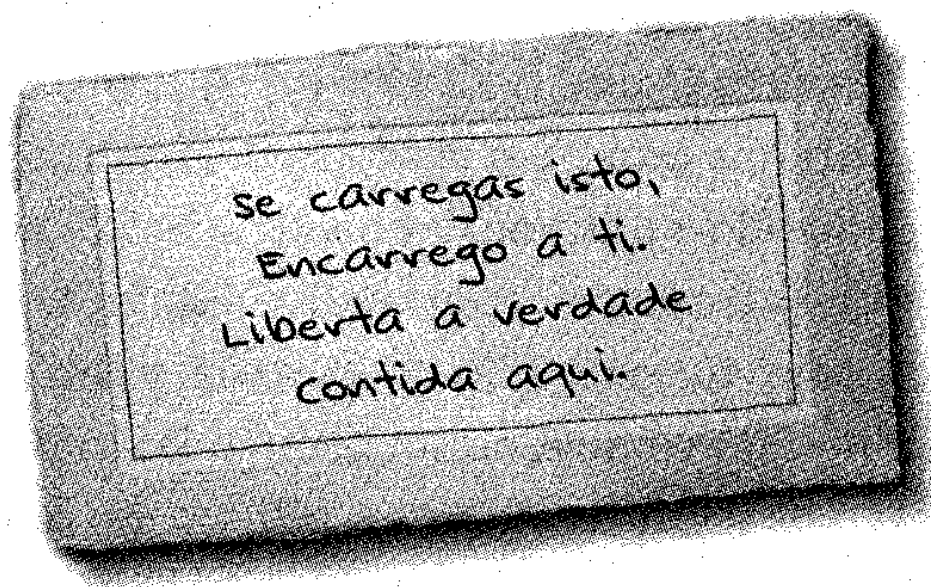 se carregas isto,
Encarrego a ti.
Liberta a verdade
contida aqui.